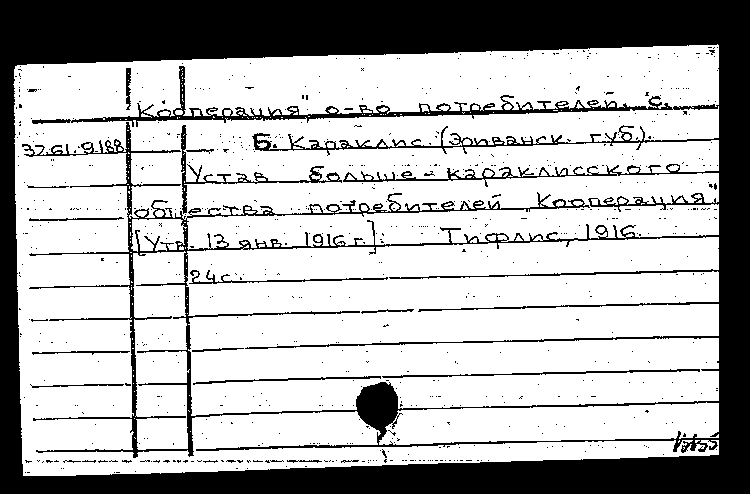 "Кооперация", о-во потребителей. с.
37.61.9.188 Б. Караклис. (Эриванск. губ.).
Устав больше-караклисского
общества потребителей „Кооперация".
[Утв. 13 янв. 1916 г.]. Тифлис, 1916.
24 с.